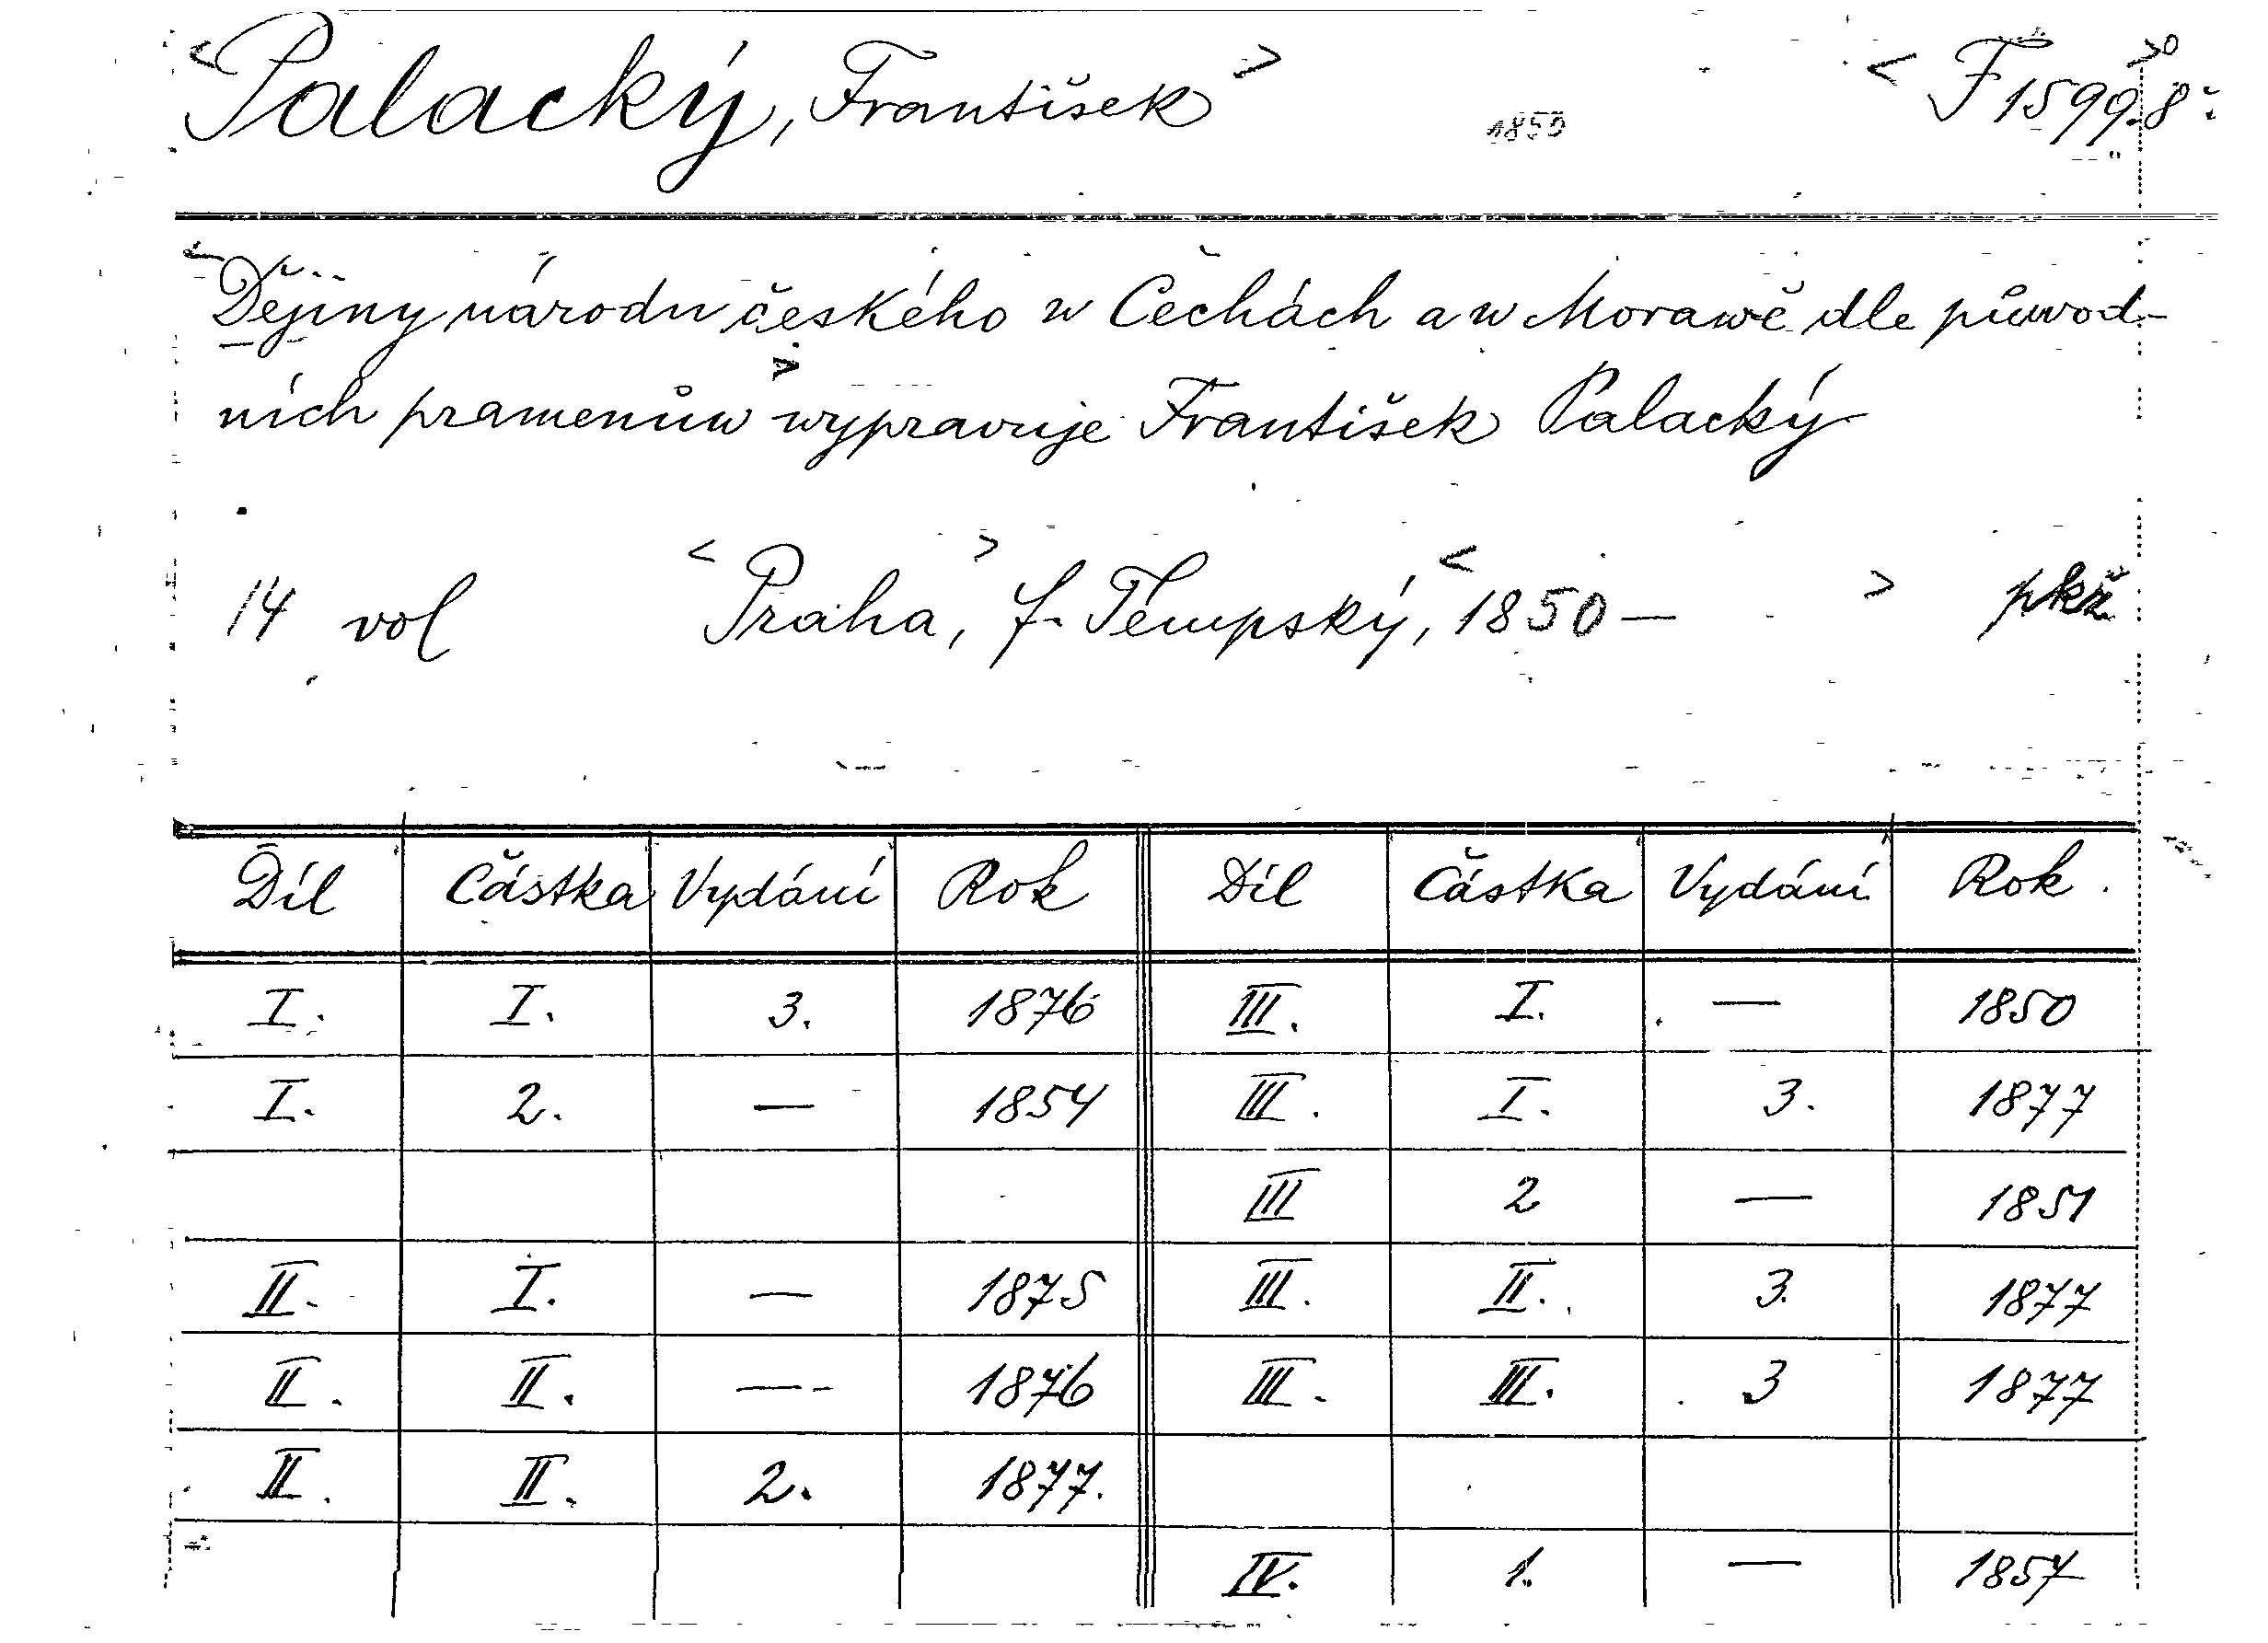 <Palacký, František> 1850 <F 1599.8°>
<Dějiny národu českého w Čechách a w Morawě dle půwod-
ních pramenůw> wypravuje František Palacký
14 vol <Praha,> f. Tempský, <1850— > pkž
Díl Částka Vydání Rok Díl Částka Vydání Rok.
I. I. 3. 1876 III. I. — 1850
I. 2. — 1854 III. I. 3. 1877
III 2 — 1851
II. I. — 1875 III. II. 3. 1877
II. II. — 1876 III. III. 3 1877
II. II. 2. 1877.
IV. 1. — 1857